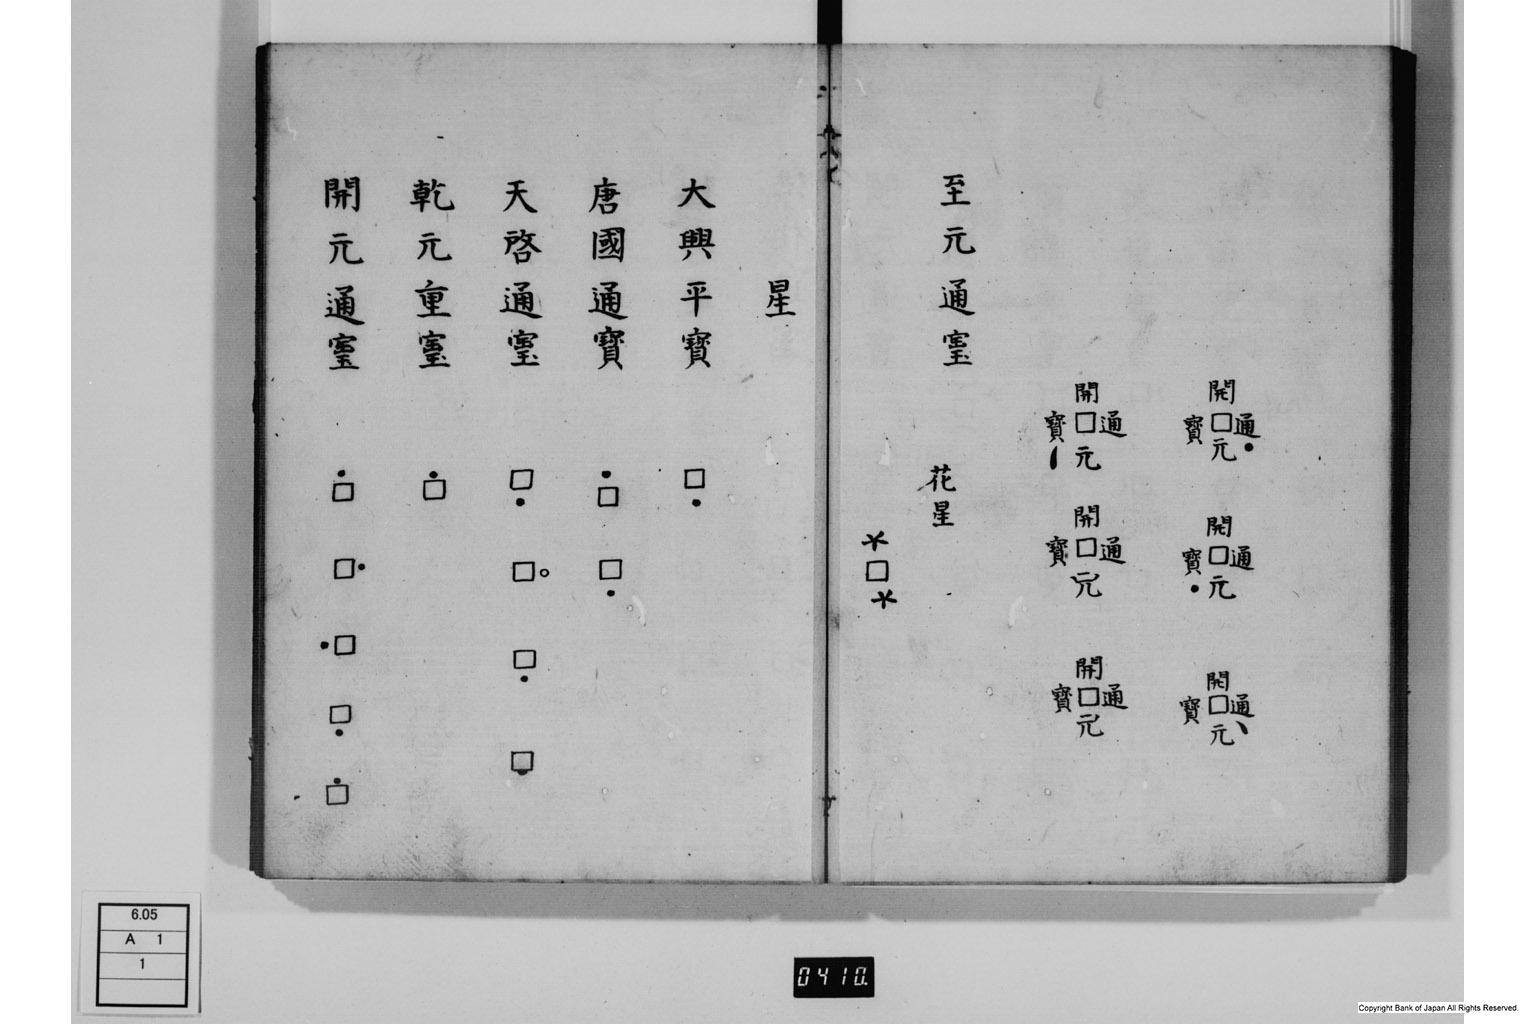 開通元寶
開通元寶
開通元寶
開通元寶
開通元寶
開通元寶
至元通寳
花星
星
大興平寶
唐國通寶
天啓通寳
乾元重寳
開元通寳
6.05
A 1
1
0410.
Copyright Bank of Japan All Rights Reserved.